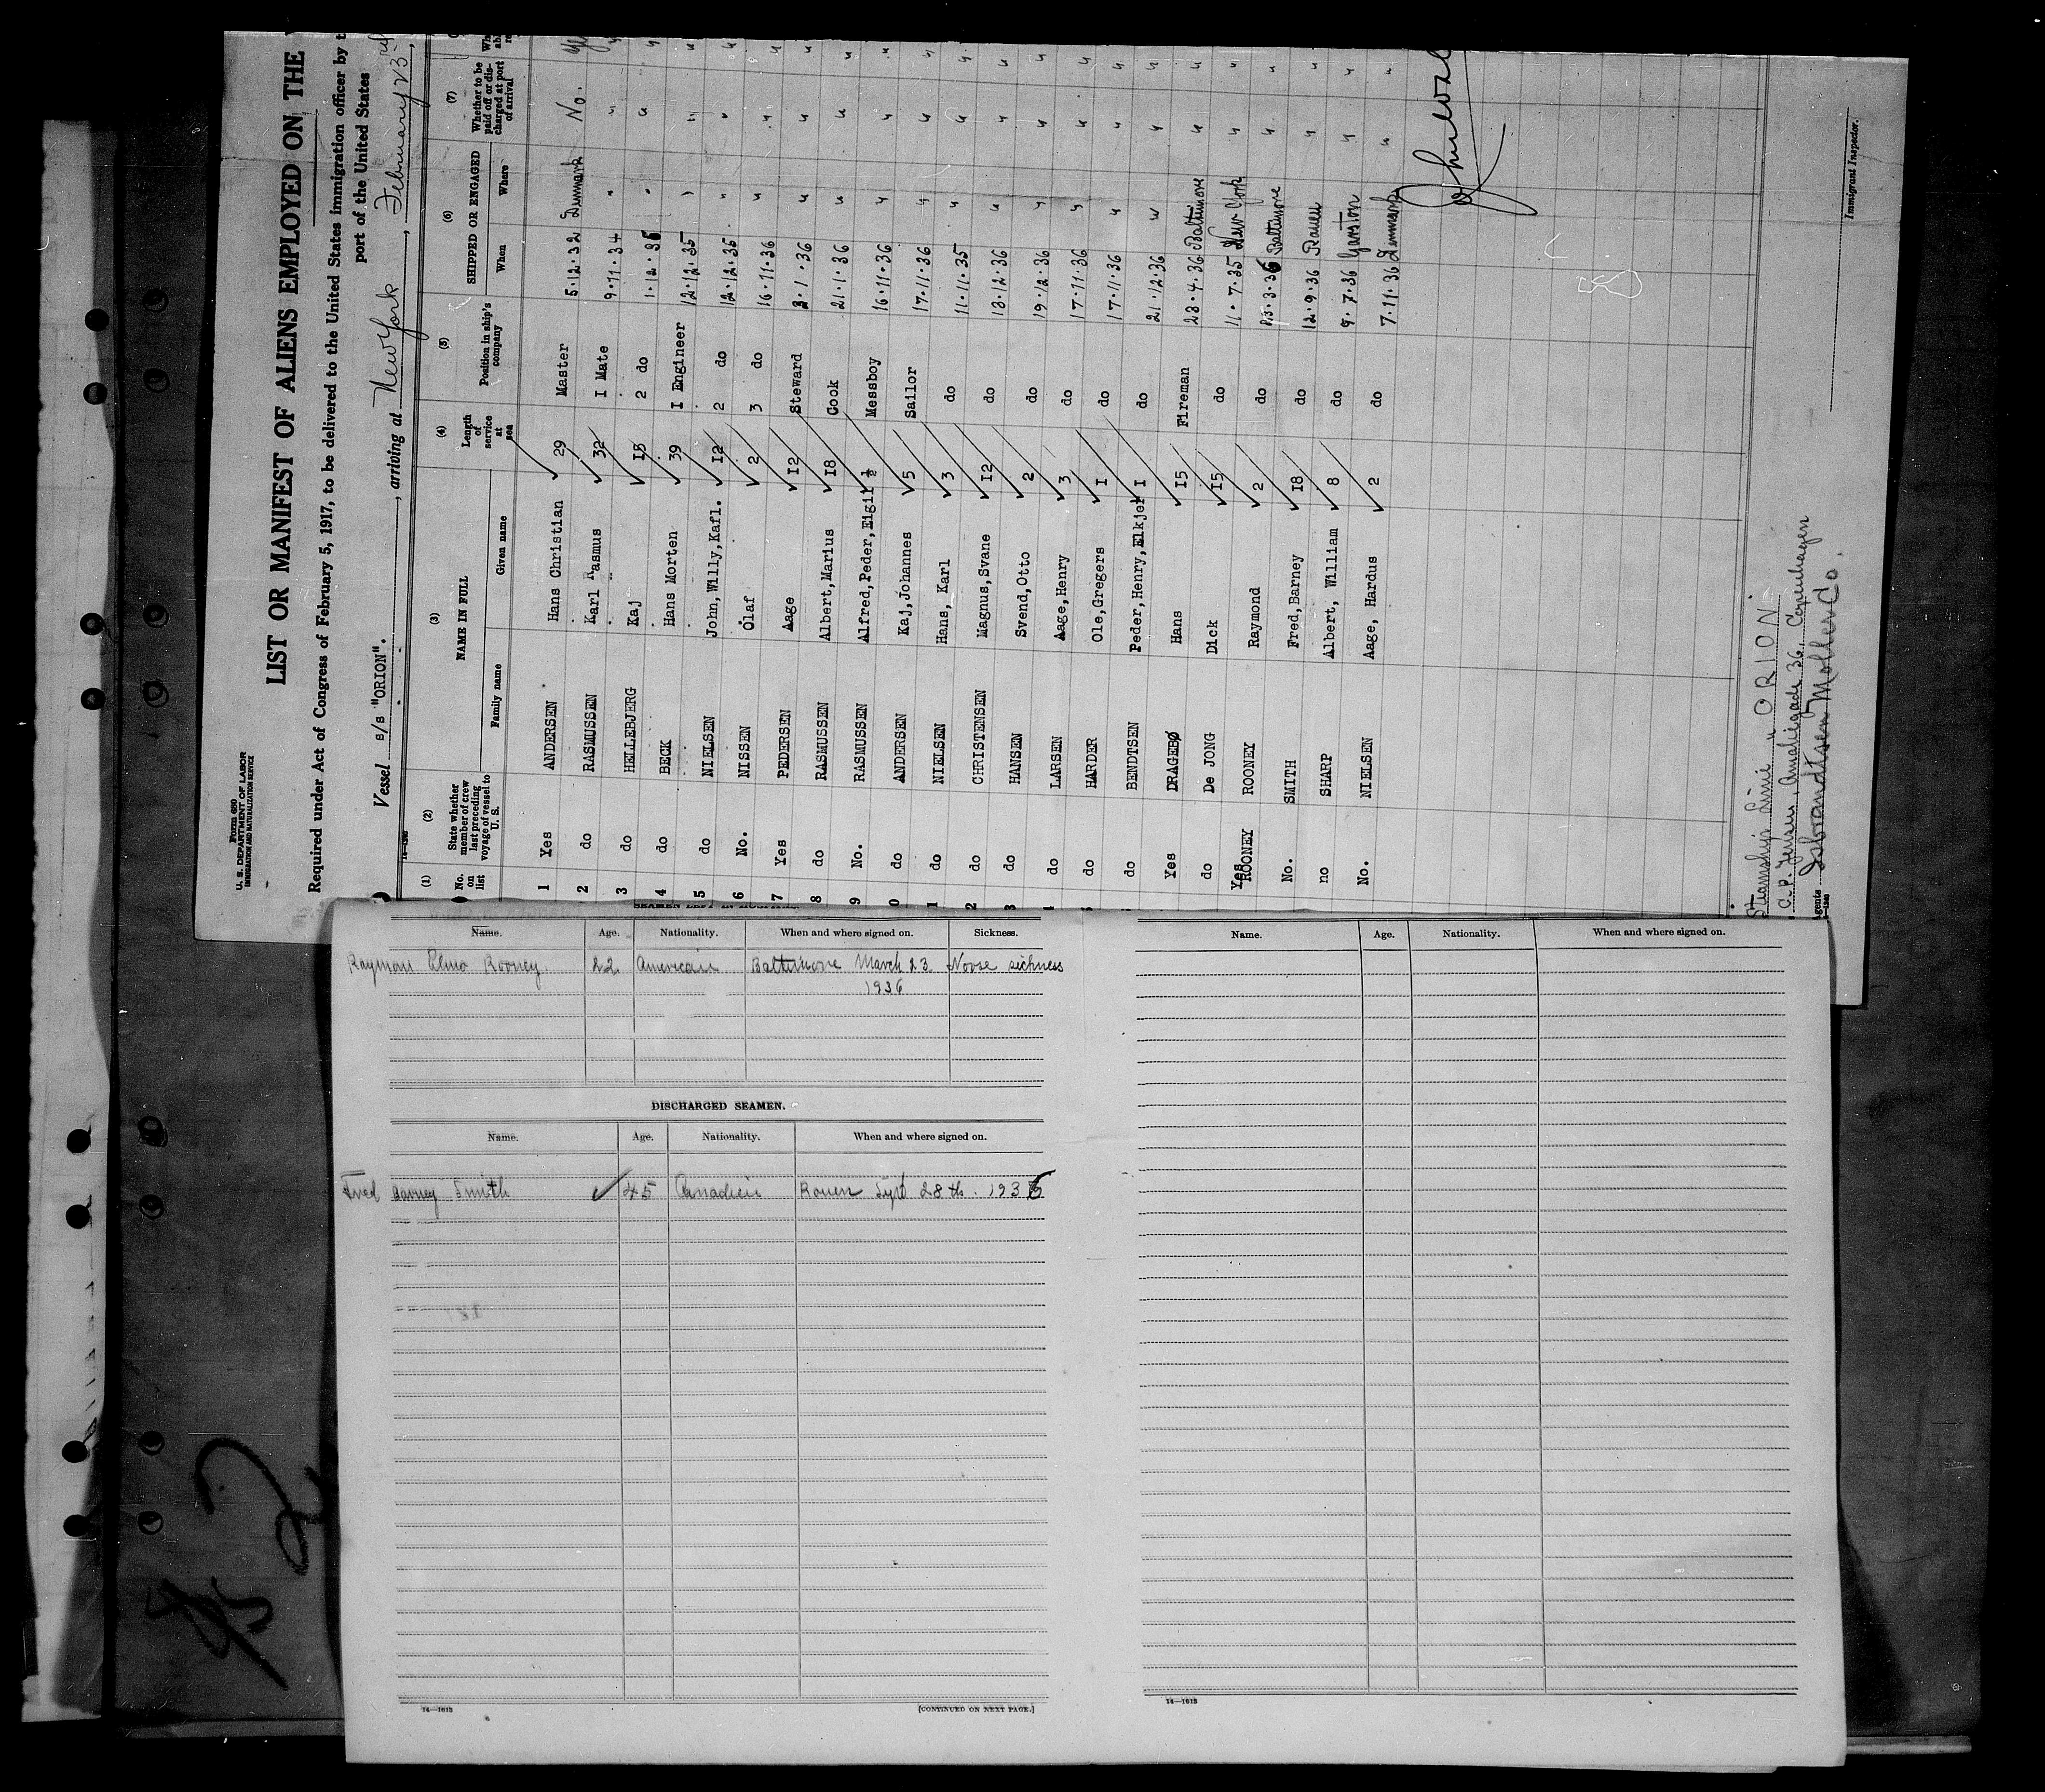 Form 680
U. S. DEPARTMENT OF LABOR
IMMIGRATION AND NATURALIZATION SERVICE
LIST OR MANIFEST OF ALIENS EMPLOYED ON THE
Required under Act of Congress of February 5, 1917, to be delivered to the United States immigration officer by
port of the United States
Vessel s/s "ORION"., arriving at New York, February 23rd,
(1) (2) (3) (4) (5) (6) (7)
No. on list State whether member of crew last preceding voyage of vessel to U. S. NAME IN FULL Length of service at sea Position in ship's company SHIPPED OR ENGAGED Whether to be paid off or discharged at port of arrival
Family name Given name When Where
1 Yes ANDERSEN Hans Christian 29 Master 5.12.32 Denmark No.
2 do RASMUSSEN Karl Rasmus 32 I Mate 9.11.34 "
3 do HELLEBJERG Kaj 15 2 do 1.12.35 "
4 do BECK Hans Morten 39 I Engineer 12.12.35 "
5 do NIELSEN John, Willy, Kafl. 12 2 do 12.12.35 "
6 No. NISSEN Olaf 2 3 do 16.11.36 "
7 Yes PEDERSEN Aage 12 Steward 2.1.36 "
8 do RASMUSSEN Albert, Marius 18 Cook 21.1.36 "
9 No. RASMUSSEN Alfred, Peder, Eigil ½ Messboy 16.11.36 "
0 do ANDERSEN Kaj, Johannes 5 Sailor 17.11.36 "
1 do NIELSEN Hans, Karl 3 do 11.11.35 "
2 do CHRISTENSEN Magnus, Svane 12 do 13.12.36 "
3 do HANSEN Svend, Otto 2 do 19.12.36 "
do LARSEN Aage, Henry 3 do 17.11.36 "
do HARDER Ole, Gregers I do 17.11.36 "
do BENDTSEN Peder, Henry, Elkjer I do 21.12.36 "
Yes DRAGEBØ Hans 15 Fireman 23.4.36 Baltimore "
do De JONG Dick 15 do 11.7.35 New York "
Yes ROONEY ROONEY Raymond 2 do 23.3.36 Baltimore "
No. SMITH Fred, Barney 18 do 12.9.36 Rouen "
no SHARP Albert, William 8 do 9.7.36 Garston "
No. NIELSEN Aage, Hardus 2 do 7.11.36 Denmark "
Steamship Line "ORION"
C.P. Jensen, Amaliegade 36, Copenhagen
gents Isbrandtsen Moller Co.
Immigrant Inspector.
Name. Age. Nationality. When and where signed on. Sickness.
Raymon Elmo Rooney. 22 American Baltimore March 23 Noose sickness
1936
DISCHARGED SEAMEN.
Name. Age. Nationality. When and where signed on.
Fred Barney Smith 45 Canadien Rouen Sept 28 th. 1936
16—1613
[CONTINUED ON NEXT PAGE.]
Name. Age. Nationality. When and where signed on.
16—1613